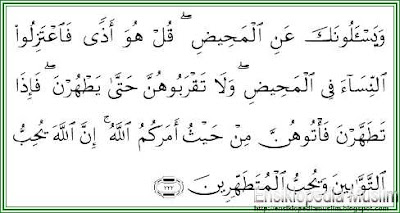 وَيَسْـَٔلُونَكَ عَنِ ٱلْمَحِيضِ ۖ قُلْ هُوَ أَذًى فَٱعْتَزِلُوا۟
ٱلنِّسَآءَ فِى ٱلْمَحِيضِ ۖ وَلَا تَقْرَبُوهُنَّ حَتَّىٰ يَطْهُرْنَ ۖ فَإِذَا
تَطَهَّرْنَ فَأْتُوهُنَّ مِنْ حَيْثُ أَمَرَكُمُ ٱللَّهُ ۚ إِنَّ ٱللَّهَ يُحِبُّ
ٱلتَّوَّٰبِينَ وَيُحِبُّ ٱلْمُتَطَهِّرِينَ ﴿٢٢٢﴾
Ensiklopedia Muslim
http://ensiklopediamuslim.blogspot.com